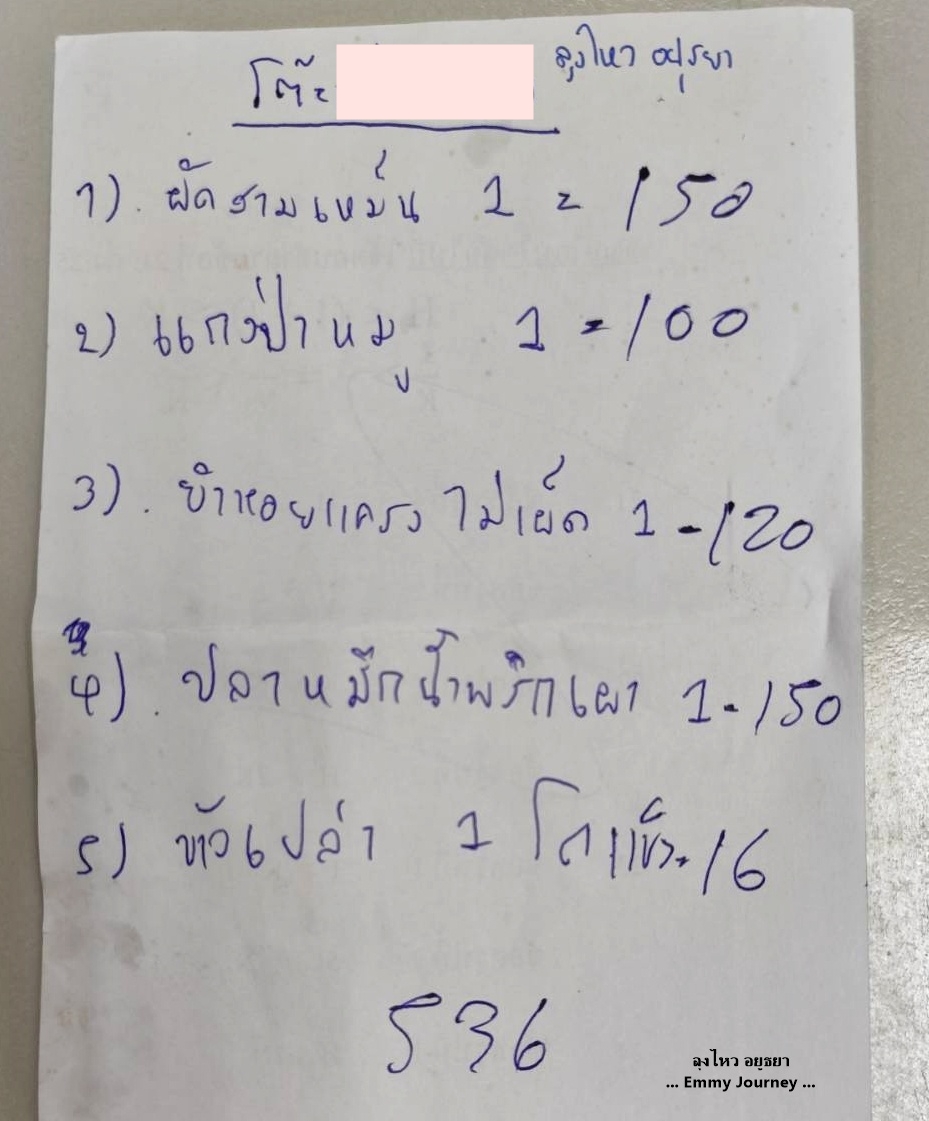 โต๊ะ
ลุงไหว อยุธยา
1). ผัดสามเหม็น 1 = 150
2) แกงป่าหมู 1 = 100
3). ยำหอยแครง ไม่เผ็ด 1 - 120
4). ปลาหมึกน้ำพริกเผา 1 - 150
5) ข้าวเปล่า 1 โถ 16
536
ลุงไหว อยุธยา
... Emmy Journey ...